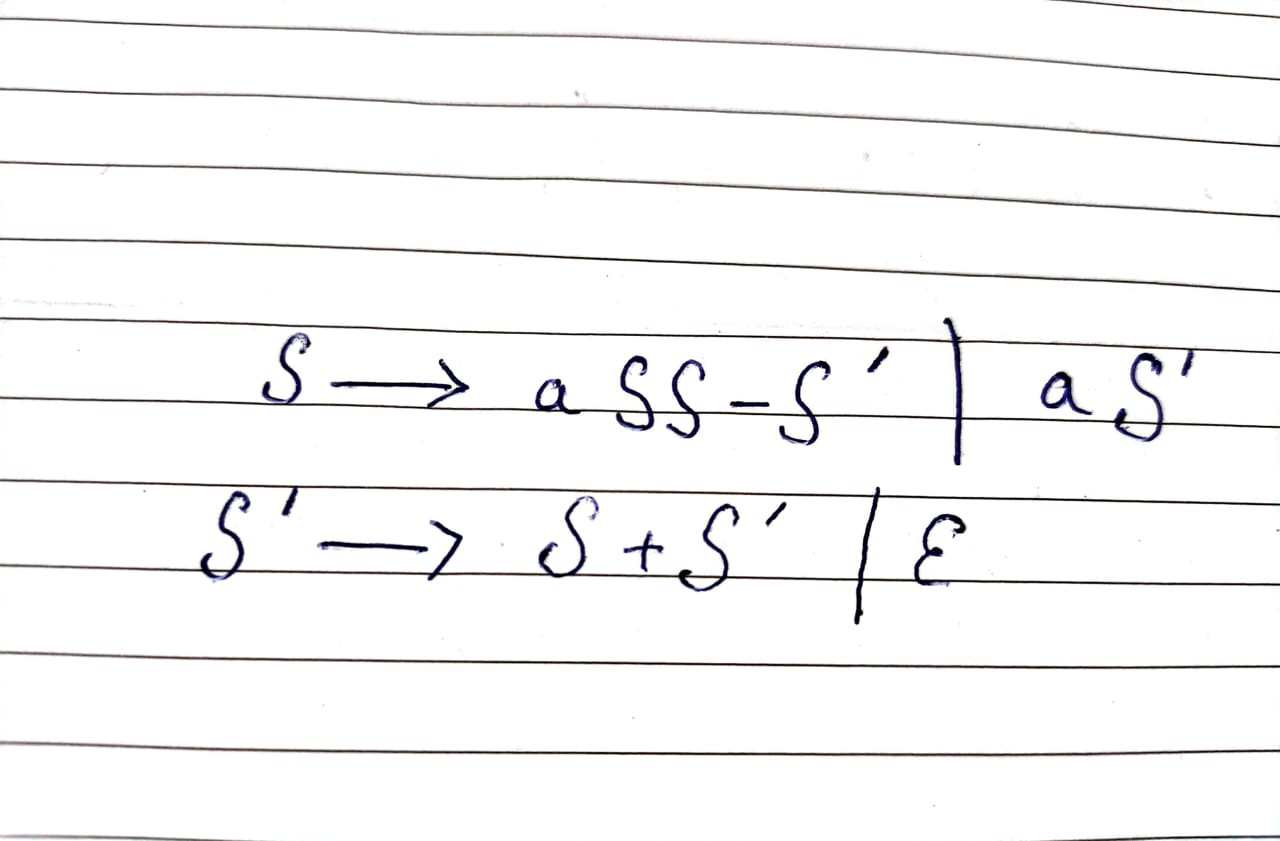 S → aSS-S' | aS'
S' → S+S' | ε